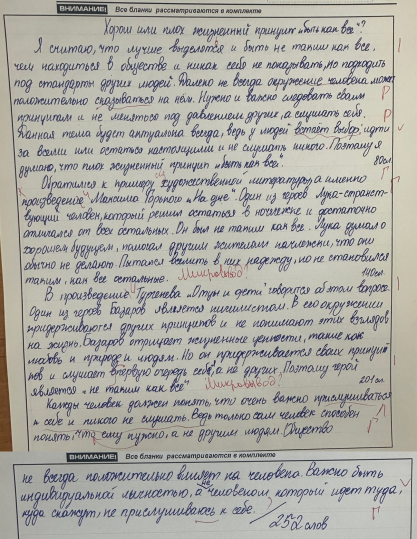 ВНИМАНИЕ! Все бланки рассматриваются в комплекте
Хорош или плох жизненный принцип "быть как все"?
Я считаю, что лучше выделятся и быть не таким как все,
чем находиться в обществе и никак себя не показывать, но подходить
под стандарты других людей. Далеко не всегда окружение человека может
положительно сказываться на нём. Нужно и важно следовать своим
принципам и не меняться под давлением других, а слушать себя.
Данная тема будет актуальна всегда, ведь у людей встаёт выбор: идти
за всеми или остаться настоящими и не слушать никого. Поэтому я
думаю, что плох жизненный принцип "быть как все".
80сл
Обратимся к примеру из художественной литературы, а именно
произведение Максима Горького "На дне". Один из героев Лука-странст-
вующий человек, который решил остаться в ночлежке и достаточно
отличался от всех остальных. Он был не таким как все. Лука думал о
хорошем будущем, помогал другим жителям ночлежки, что они
обычно не делали. Пытался вселить в них надежду, но не становился
таким, как все остальные. Микровывод? 140сл
В произведение Тургенева "Отцы и дети" говорится об этом вопросе.
Один из героев Базаров является нигилистом. В его окружении
придерживаются других принципов и не понимают этих взглядов
на жизнь. Базаров отрицает жизненные ценности, такие как
любовь к природе и людям. Но он придерживается своих принци
пов и слушает впервую очередь себя, а не других. Поэтому герой
является "не таким как все" Микровывод? 201сл
Каждый человек должен понять, что очень важно прислушиваться
к себе и никого не слушать. Ведь только сам человек способен
понять, что ему нужно, а не другим людям. Общество
ВНИМАНИЕ! Все бланки рассматриваются в комплекте
не всегда положительно влияет на человека. Важно быть
индивидуальной личностью, а не человеком который идет туда,
куда скажут, не прислушиваюсь к себе.
252 слов